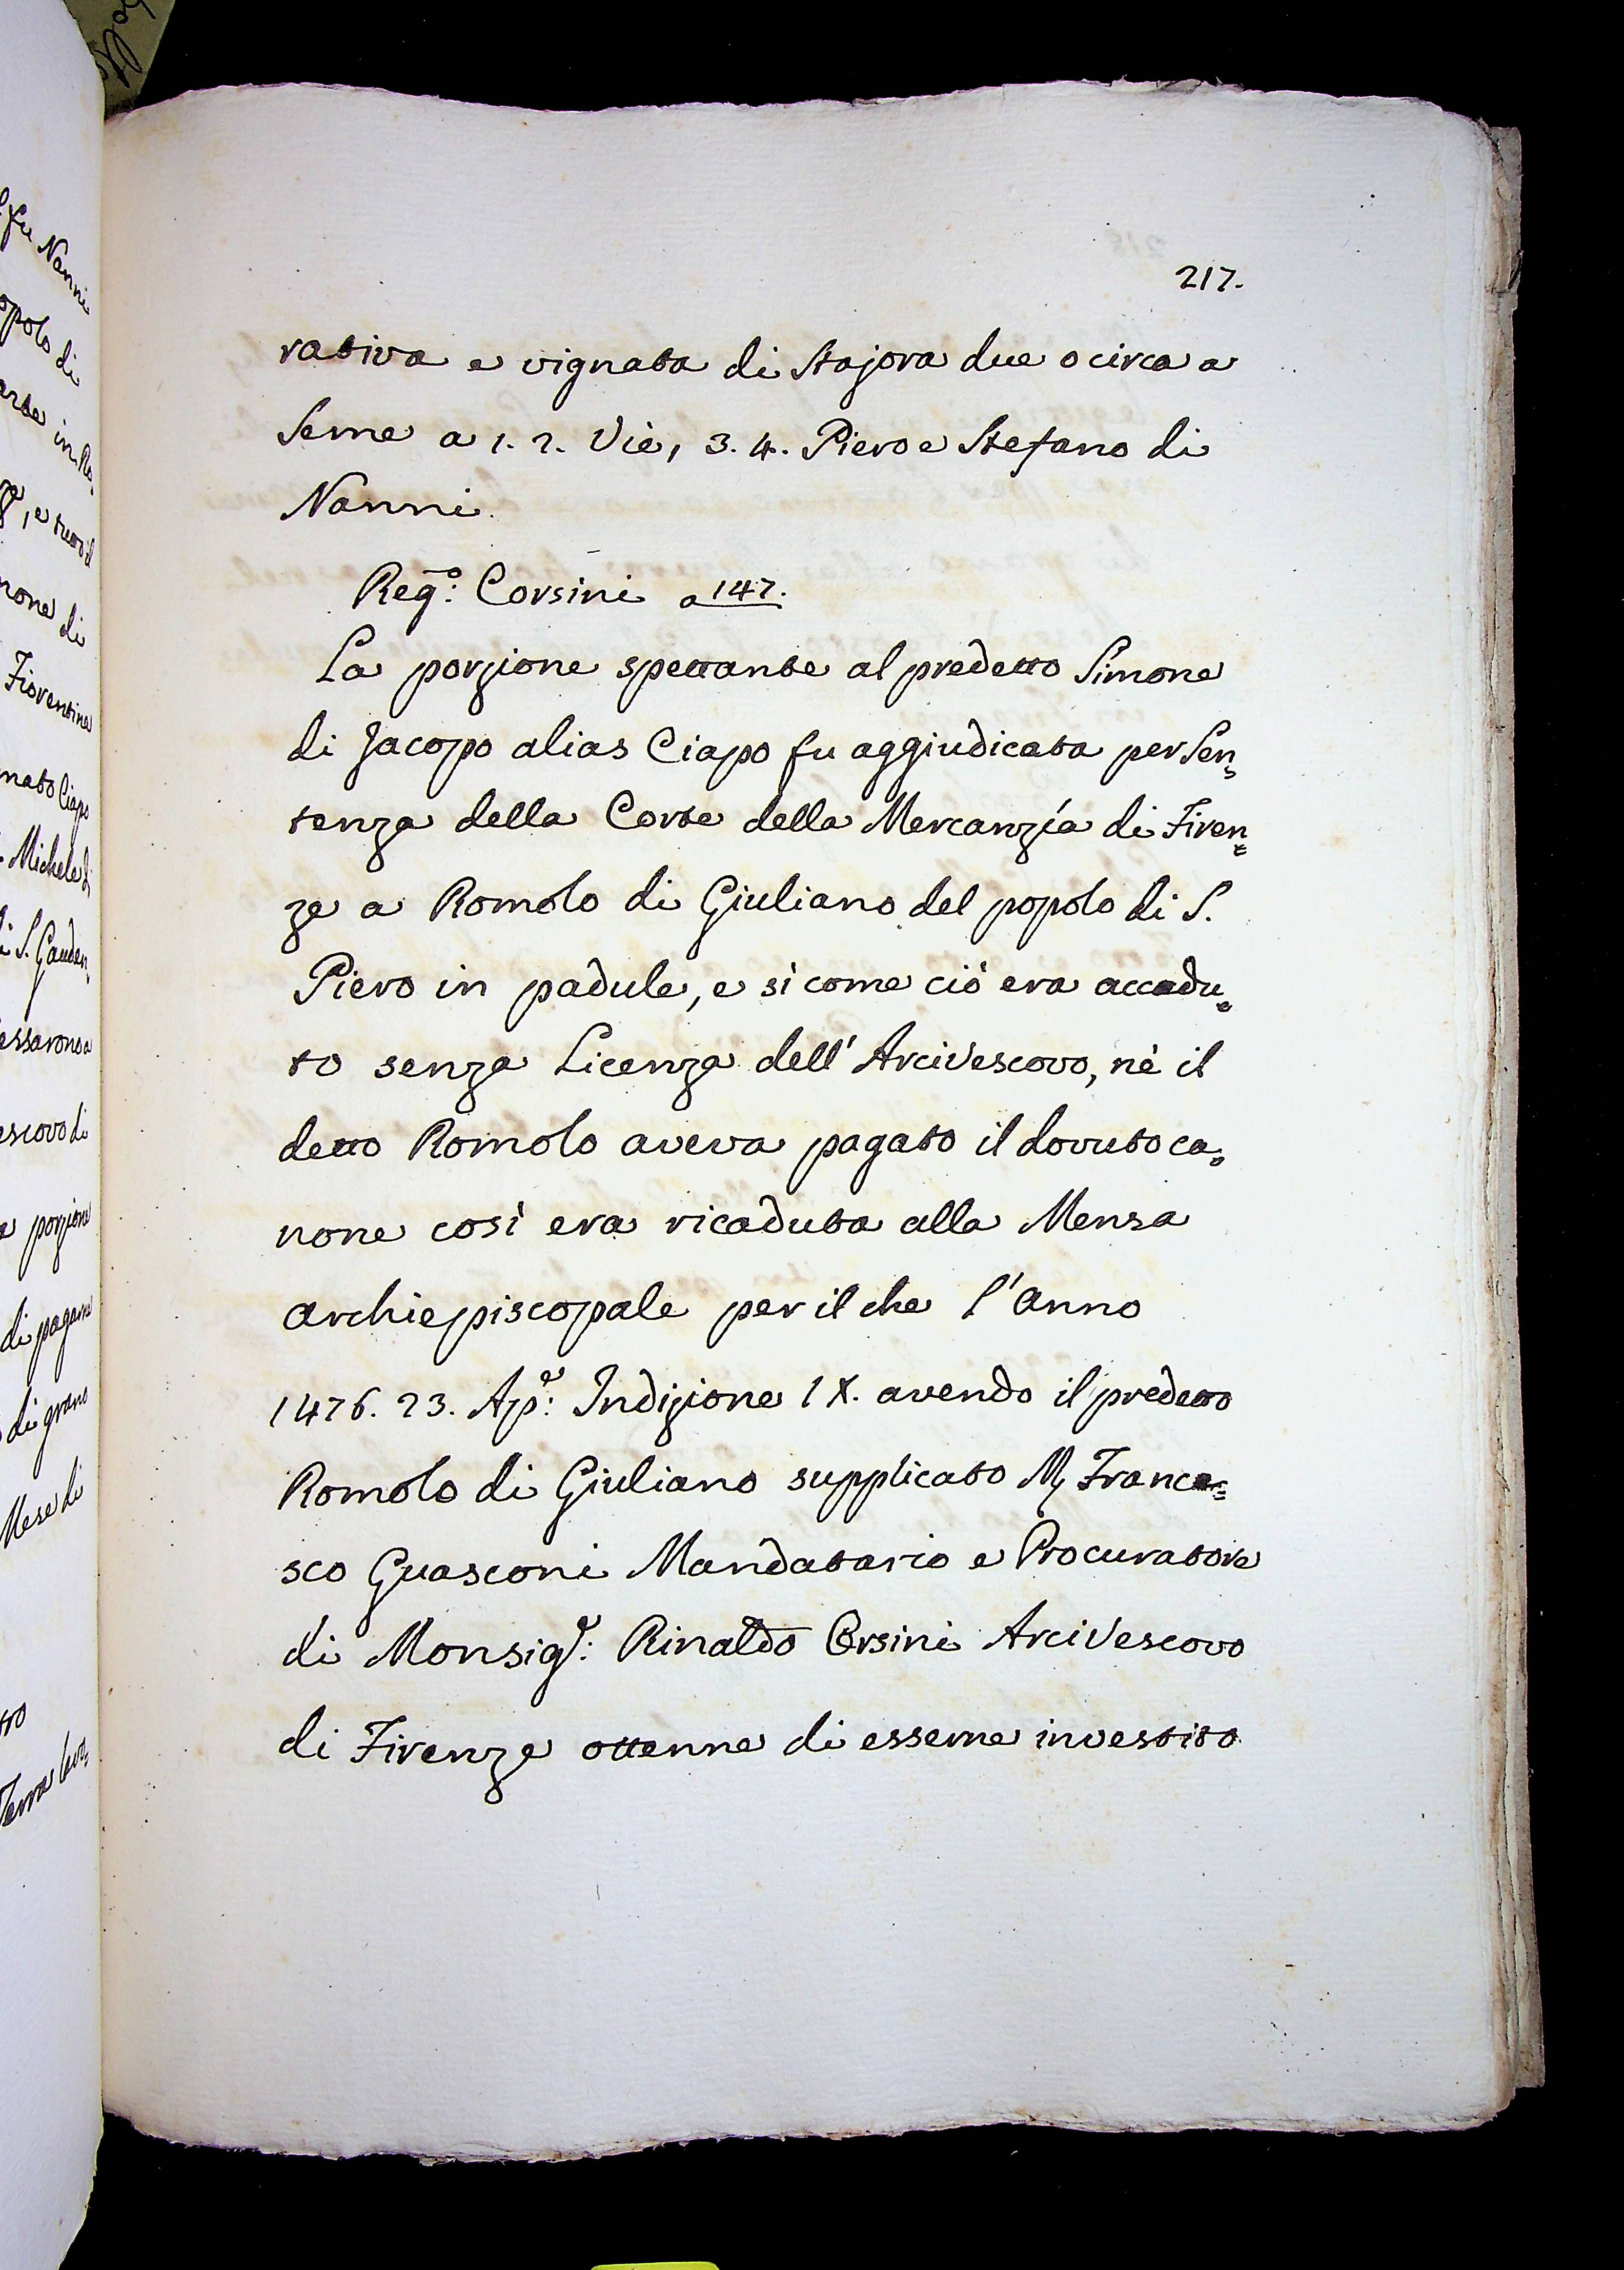 217.
rativa e vignata di Stajora due o circa a
Seme a 1. 2. Vie, 3. 4. Piero e Stefano di
Nanni.
Reg.º: Corsini a 147.
La porzione spettante al predetto Simone
di Jacopo alias Ciapo fu aggiudicata per Sen=
tenza della Corte della Mercanzía di Firen=
ze a Romolo di Giuliano del popolo di S.
Piero in padule, e sì come ciò era accadu=
to senza Licenza dell' Arcivescovo, nè il
detto Romolo aveva pagato il dovuto ca=
none così era ricaduta alla Mensa
archiepiscopale per il che l'anno
1476. 23. Ap.e: Indizione IX. avendo il predetto
Romolo di Giuliano supplicato M. France=
sco Guasconi Mandatario e Procuratore
di Monsig.r: Rinaldo Orsini Arcivescovo
di Firenze ottenne di esserne investito
fu Nanni
opolo di
none di
Fiorentina
nato Ciapo
Michele di
di S. Gauden=
escovo di
a porzione
di pagare
di grano
Mese di